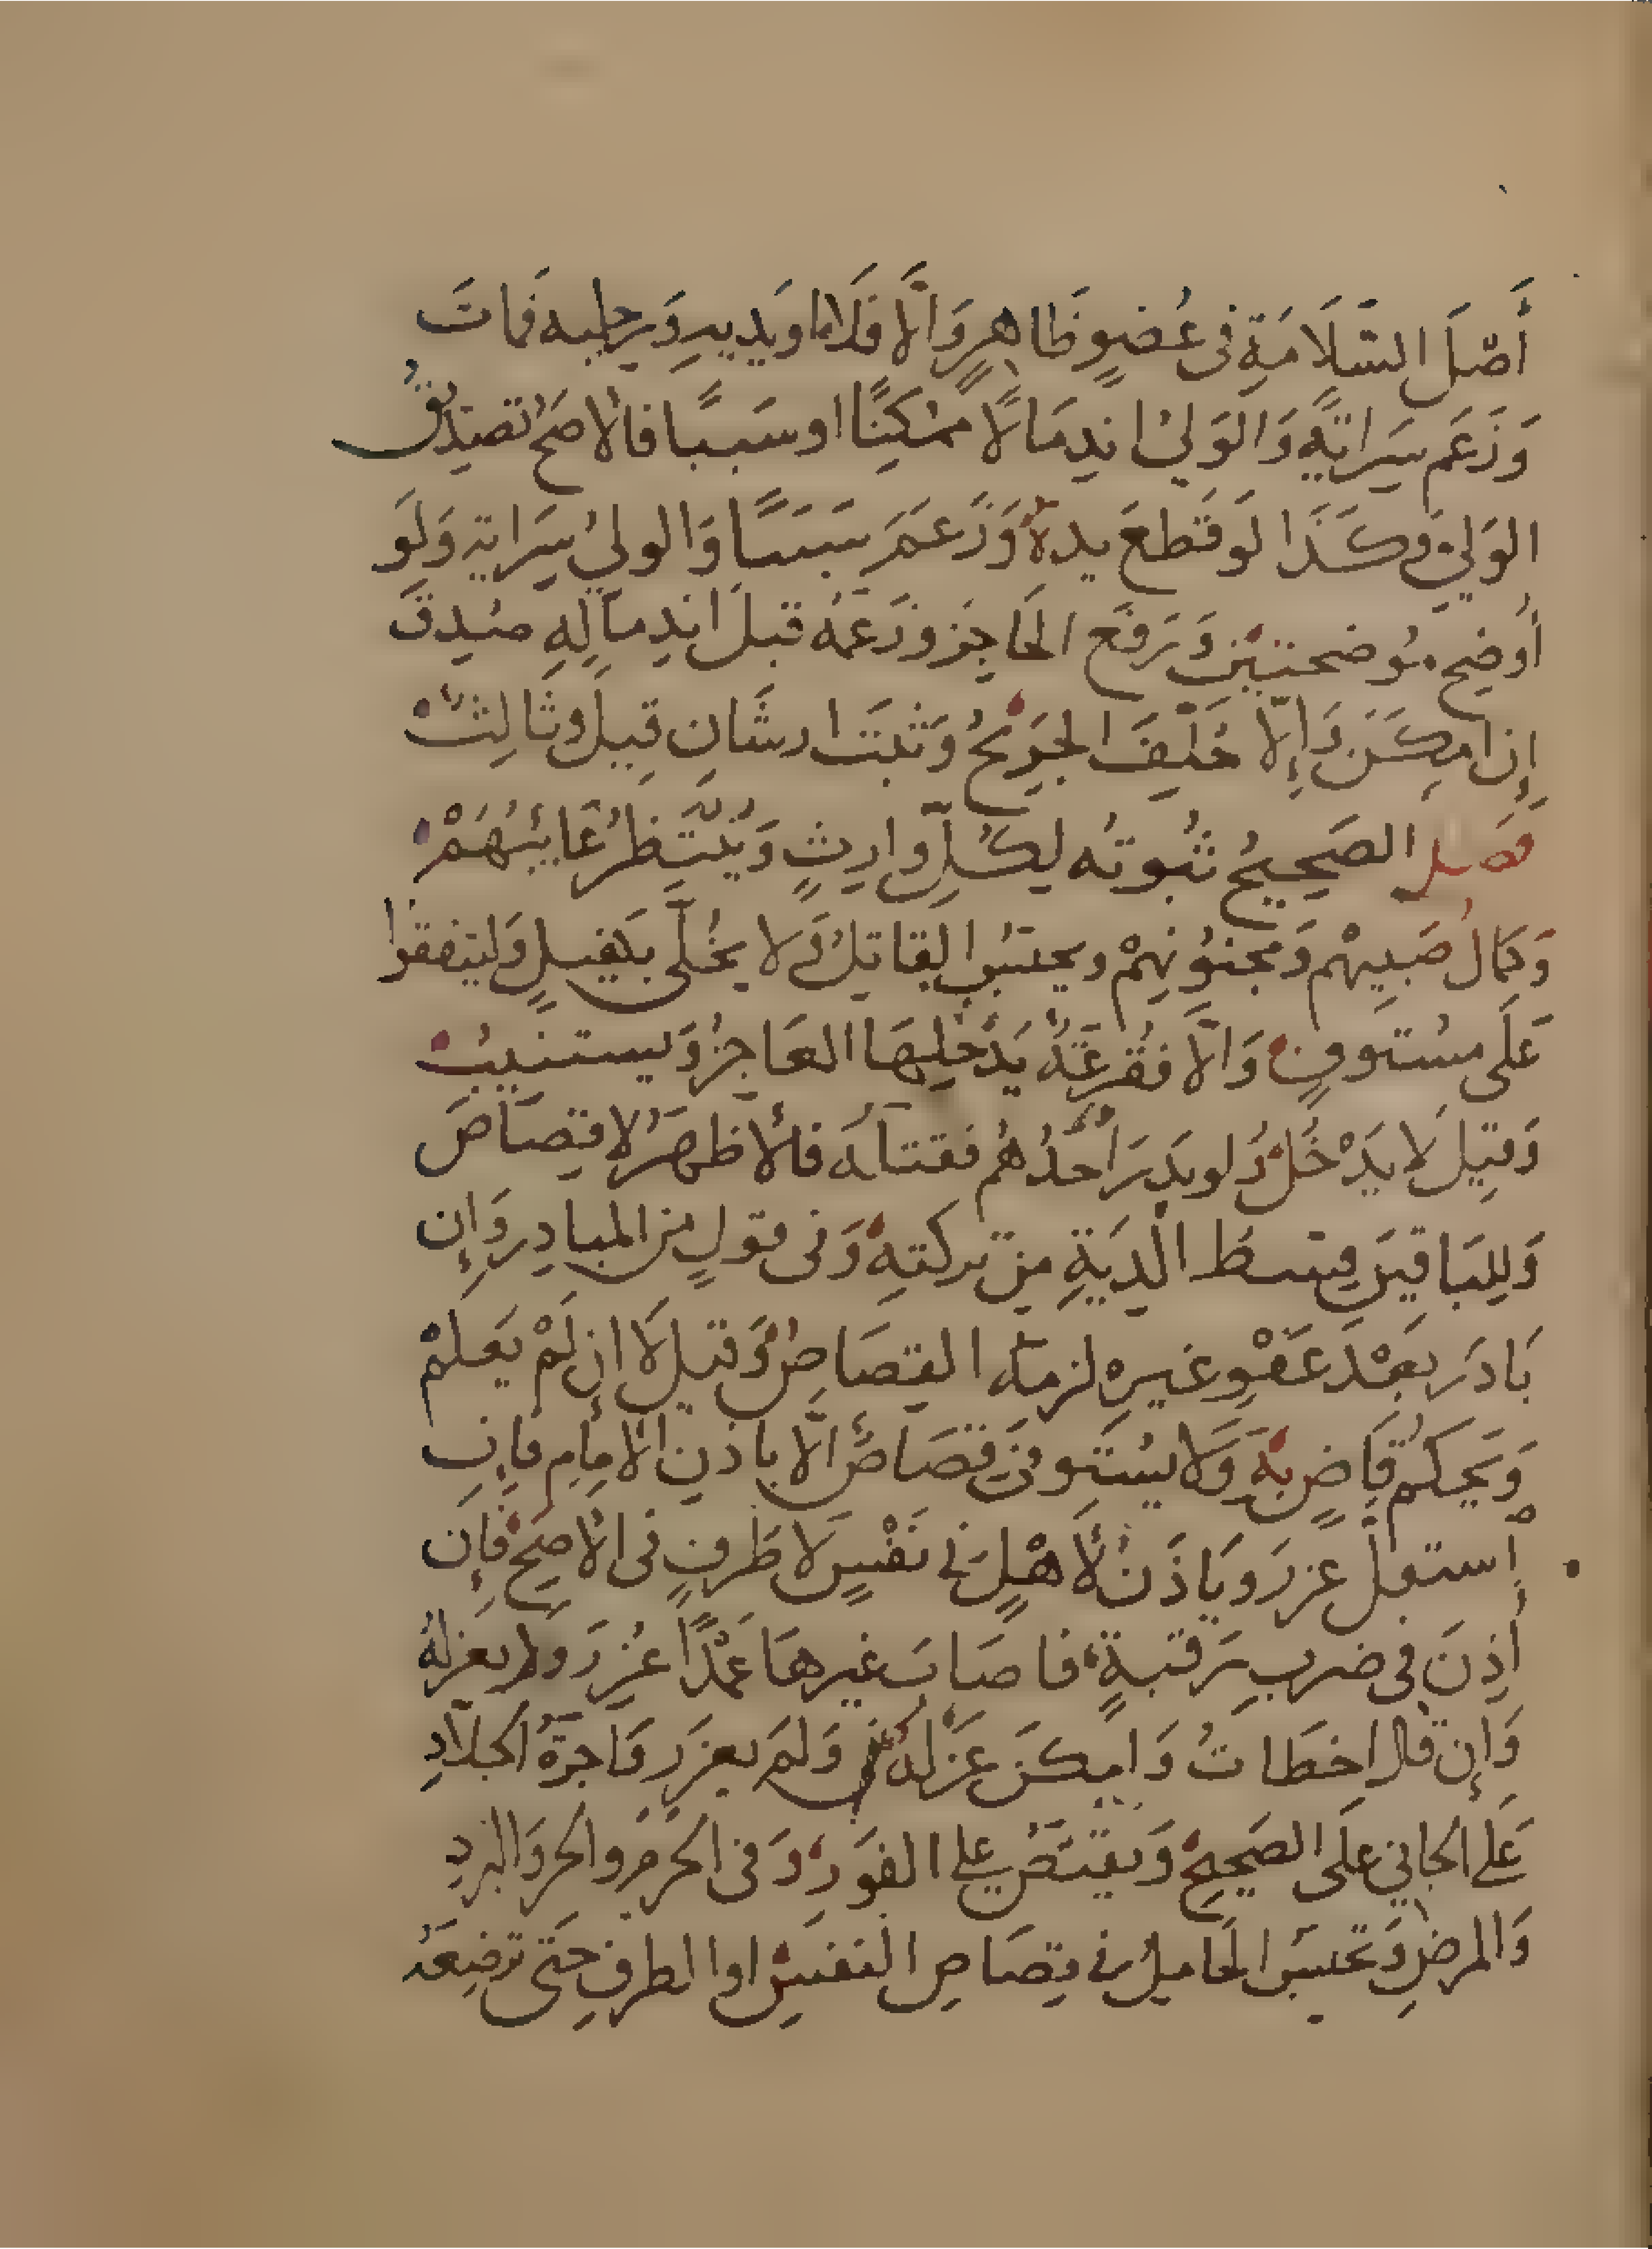 أَصْلَ السَّلَامَةِ فى عُضوٍ ظَاهِرٍ وَإلَّا فَلَا او يديهِ وَرجليه فَماتَ
وَزَعَم سِرَايَةً وَالوَلىُ اندِمَالًا مُمكِنًا او سَبَبا فالاصَحُ تصديقُ
الوَلىِ وكَذَا لَو قَطعَ يده وَزَعَمَ سَبَبًا وَالولىُ سِرَاية وَلَو
أوضح موُضحتيْنِ وَرَفَع الحَاجِزَ وَزَعَمهُ قبلَ اندِمَالِهِ صُدِقَ
إن امكَنَ وَإلّا حُلّفَ الجَرِيْحُ وَثَبَتَ ارشَانِ قِيلَ وثَالِثٌ
فصل الصَحِيحُ ثُبوتُه لِكُلّ وارِثٍ وَيُنْتَظرُ غَايبُهُمْ
وَكمالُ صَبِيهمْ وَمجنُونِهمْ ويحبَسُ القاتِلُ وَلا يُخلَّى بكفيلٍ وَليتفقوا
عَلَى مسُتوفٍ وَالّا فقُرعَةٌ يَدْخلهَا العَاجزُ وَيستنيبُ
وَقيلَ لَا يَدْخُلُ وَلو بدَرَ احَدُهُم فقتلَهُ فالأظهَرُ لا قِصَاصَ
وَلِلبَاقينَ قِسطُ الدِيَةِ مِن تركتهِ وَفى قولٍ من المبادِر وَإن
بَادَر بَعْدَ عَفْوِ غيرهِ لزمهُ القِصَاصُ وَقيلَ لَا ان لَمْ يَعلَمْ
وَيَحكمُ قَاضٍ بهِ وَلا يسُتَوفىَ قصَاصٌ الَّا باذنِ الامامِ فإن
استقلَّ عزرَ وَيَاذَنُ لأهْلٍ فى نَفْسٍ لَا طَرفٍ فى الأصَحِ فإن
أذِنَ فى ضربِ رَقبةٍ فاصَابَ غيرهَا عَمْدًا عُزِرَ ولم يعزلهُ
وَإن قال اخطَاتُ وَامكَنَ عَزَلهُ وَلمَ يعزَر وَاجرَةُ الجلّادِ
عَلى الجانِى علَى الصَحيحِ وَيقتَصُ على الفَورِ وَفى الحَرَم والحرِ وَالبردِ
وَالمرضِ وَتحبَسُ الحَاملُ فى قِصَاصِ النفسِ او الطرفِ حَتى ترضِعَهُ